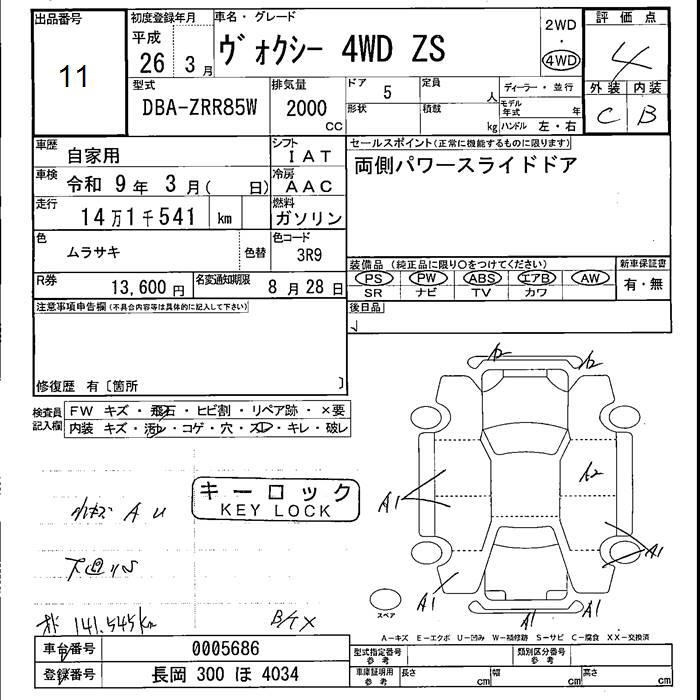 出品番号
11
初度登録年月
平成
26 3 月
車名・グレード
ヴォクシー 4WD ZS
2WD
・
4WD
評価点
4
外装 内装
C B
型式
DBA-ZRR85W
排気量
2000
CC
ドア 5
定員
人
形状
積載
kg
ディーラー・並行
モデル年式 年
ハンドル 左・右
車歴
自家用
シフト
IAT
車検
令和 9 年 3 月( 日)
冷房
AAC
走行
14万1千541 km
燃料
ガソリン
色
ムラサキ
色替
色コード
3R9
R券
13,600 円
名変通知期限
8 月 28 日
セールスポイント(正常に機能するものに限ります)
両側パワースライドドア
装備品 (純正品に限り○をつけてください)
PS PW ABS エアB AW
SR ナビ TV カワ
新車保証書
有・無
注意事項申告欄(不具合内容等は具体的に記入して下さい)
後日品
修復歴 有〔箇所 〕
検査員記入欄
FW キズ・飛石・ヒビ割・リペア跡・×要
内装 キズ・汚レ・コゲ・穴・スレ・キレ・破レ
キーロック
KEY LOCK
A U
下廻りS
141.545km
A2 A2
A2
A1
A1
A1 A1 A1
スペア
A－キズ E－エクボ U－凹み W－補修跡 S－サビ C－腐食 XX－交換済
車台番号
0005686
登録番号
長岡 300 ほ 4034
型式指定番号
参考
類別区分番号
参考
車庫証明用
参考
長さ cm
幅 cm
高さ cm